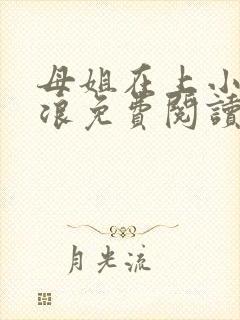 母姐在上小
浪免費閱讀
月光流